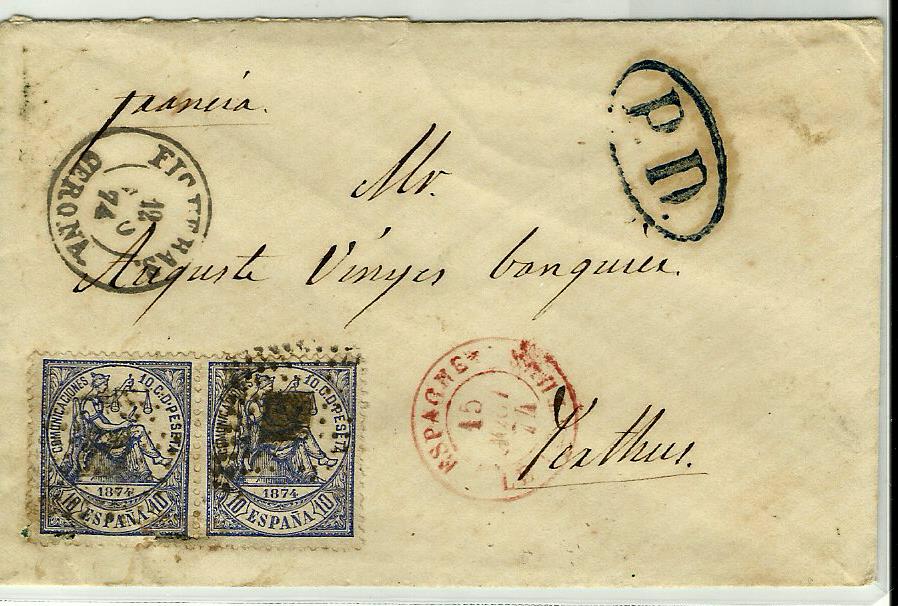 Francia.
P.D.
FIGUERAS.
12
74
GERONA.
Mr.
Auguste Vinyes banquier.
ESPAGNE
15
74
Perthus.
COMUNICACIONES 10.C.D PESETA
1874
10 ESPAÑA 10
COMUNICACIONES 10.C.D PESETA
1874
10 ESPAÑA 10